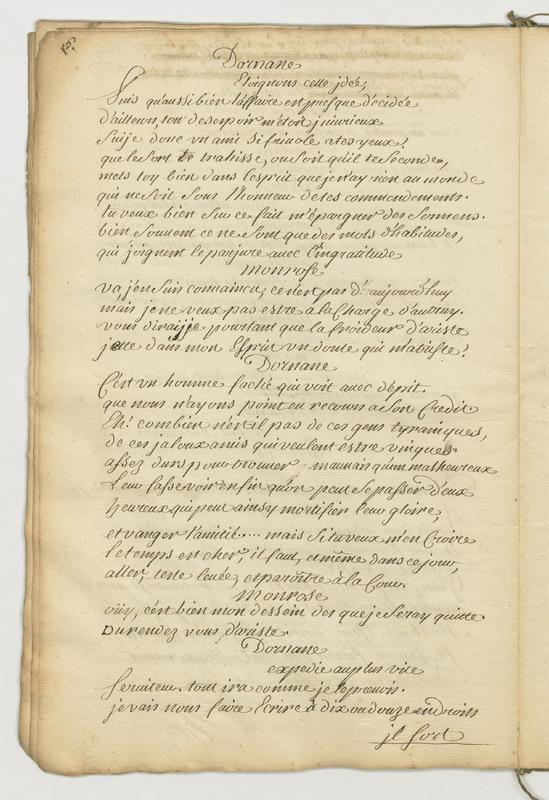 Dornane
Eloignons cette jdée;
Puis qu'aussi bien l'affaire est presque décidée
d'ailleurs, ton desespoir m'étoit jnjurieux
Suis je donc vn ami si friuole a tes yeux?
que le Sort te trahisse, ou Soit qu'il te Seconde,
mets toy bien dans l'esprit que je n'ay rien au monde
qui ne soit Sous l'honneur de tes commendemens.
tu veux bien Sur ce fait m'épargner des Sermens.
bien souuent ce ne Sont que des mots d'habitudes,
qui joignent le parjure auec l'ingratitude
Monrose
va j'en Suis conuaincu, ce n'est pas d'aujourd'huy
mais je ne veux pas estre a la Charge d'autruy.
vous diraijje pourtant que la froideur d'ariste
jette dans mon Esprit vn doute qui m'atriste?
Dornane
C'est vn homme faché qui voit auec dépit.
que nous n'ayons point eu recours a Son Credit
Eh! combien n'est il pas de ces gens tyraniques,
de ces jaloux amis qui veulent estre vniques
assez durs pour trouuer mauuais qu'un malheureux
Leur fasse voir enfin qu'on peut Se passer d'eux
heureux qui peut ainsy mortifier leur gloire,
et vanger l'amitié.... mais Si tu veux m'en Croire
le temps est cher, il faut, et même dans ce jour,
aller, teste leuée, et parôitre à la Cour.
Monrose
oüy, c'est bien mon dessein des que je Seray quitte
Du rendez vous d'ariste.
Dornane
expedie au plus vite
Seruiteur. tout ira comme je le preuois.
je vais nous faire Ecrire à dix ou douze endroits
jl Sort